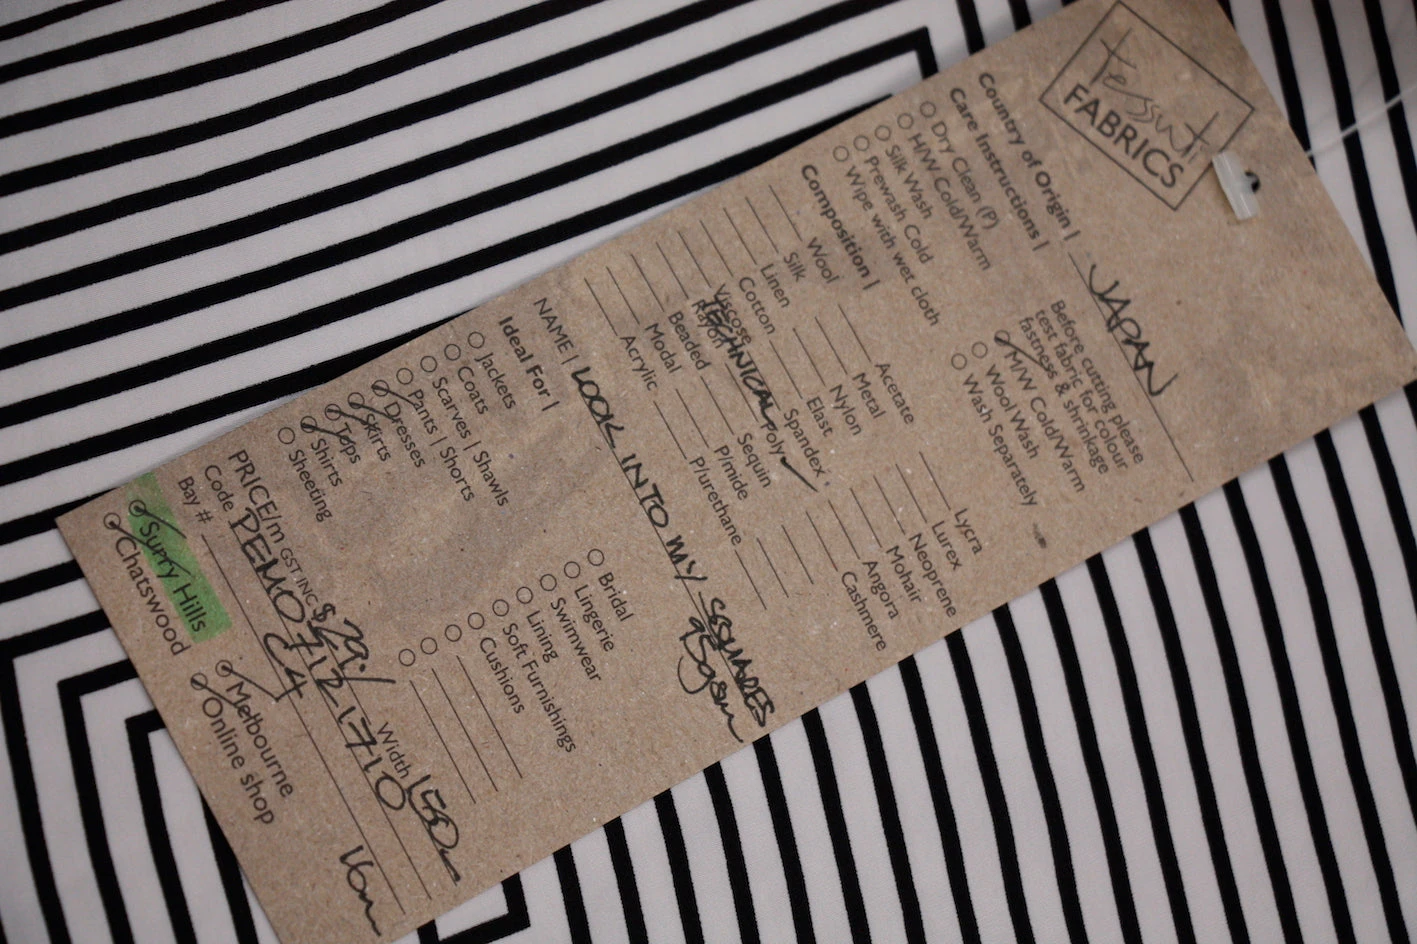 tessuti
FABRICS
Country of Origin | JAPAN
Care Instructions |
Dry Clean (P)
H/W Cold/Warm
Silk Wash
Prewash Cold
Wipe with wet cloth
Before cutting please
test fabric for colour
fastness & shrinkage
M/W Cold/Warm
Wool Wash
Wash Separately
Composition |
Wool
Silk
Linen
Cotton
Viscose
Rayon
Beaded
Modal
Acrylic
Acetate
Metal
Nylon
Elast
Spandex
TECHNICAL Poly
Sequin
P/mide
P/urethane
Lycra
Lurex
Neoprene
Mohair
Angora
Cashmere
NAME | LOOK INTO MY SQUARES
95gsm
Ideal For |
Jackets
Coats
Scarves | Shawls
Pants | Shorts
Dresses
Skirts
Tops
Shirts
Sheeting
Bridal
Lingerie
Swimwear
Lining
Soft Furnishings
Cushions
PRICE/m GST INC $29/ Width 150
Code PEMO71217710
Bay # C4
Surry Hills
Chatswood
Melbourne
Online shop
16m